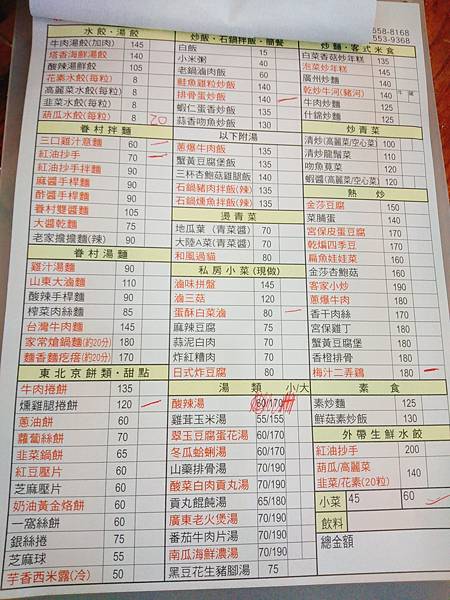 658-8168
553-9368
水餃·湯餃
牛肉湯餃(加肉) 145
塔香海鮮湯餃 140
酸辣湯鮮餃 105
花素水餃(每粒) 8
高麗菜水餃(每粒) 8
韭菜水餃(每粒) 8
葫瓜水餃(每粒) 8 20
眷村拌麵
三口雞汁意麵 60
紅油抄手 70
紅油抄手拌麵 90
麻醬手桿麵 80
酢醬手桿麵 90
眷村雙醬麵 90
大醬乾麵 75
老家擔擔麵(辣) 90
眷村湯麵
雞汁湯麵 90
山東大滷麵 110
酸辣手桿麵 90
榨菜肉絲麵 85
台灣牛肉麵 145
家常熗鍋麵(約20分) 180
麵香麵疙瘩(約20分) 170
東北京餅類·甜點
牛肉捲餅 135
燻雞腿捲餅 120
蔥油餅 60
蘿蔔絲餅 70
韭菜鍋餅 65
紅豆壓片 60
芝麻壓片 60
奶油黃金烙餅 60
一窩絲餅 60
銀絲捲 75
芝麻球 55
芋香西米露(冷) 50
炒飯·石鍋拌飯·簡餐
白飯 15
小米粥 40
老鍋滷肉飯 60
鮭魚雞粒炒飯 140
排骨蛋炒飯 140
蝦仁蛋香炒飯 130
蒜香吻魚炒飯 130
以下附湯
蔥爆牛肉飯 135
蟹黃豆腐煲飯 135
三杯杏鮑菇雞腿飯 140
石鍋豬肉拌飯(辣) 135
石鍋燻魚拌飯(辣) 135
燙青菜
地瓜葉(青菜醬) 70
大陸A菜(青菜醬) 70
和風過貓 80
私房小菜(現做)
滷味拼盤 145
滷三菇 120
蛋酥白菜滷 80
麻辣豆腐 75
蒜泥白肉 70
炸紅糟肉 70
日式炸豆腐 80
湯類 小/大
酸辣湯 60/170
雞茸玉米湯 55/155
翠玉豆腐蛋花湯 60/170
冬瓜蛤蜊湯 60/170
山藥排骨湯 70/190
酸菜白肉貢丸湯 70/190
貢丸餛飩湯 65/180
廣東老火煲湯 70/190
番茄牛肉片湯 70/190
南瓜海鮮濃湯 70/190
黑豆花生豬腳湯 75
炒麵·客式米食
白菜香菇炒年糕 135
泡菜炒年糕 145
廣州炒麵 140
乾炒牛河(豬河) 140
牛肉炒麵 125
什錦炒麵 125
炒青菜
清炒(高麗菜/空心菜) 100
清炒龍鬚菜 110
吻魚莧菜 120
蝦醬(高麗菜/空心菜) 120
熱炒
金莎豆腐 150
菜脯蛋 140
宮保皮蛋豆腐 170
乾煸四季豆 170
扁魚娃娃菜 170
金莎杏鮑菇 160
客家小炒 190
蔥爆牛肉 190
香干肉絲 170
宮保雞丁 180
蟹黃豆腐煲 180
香橙排骨 180
梅汁二弄鷄 160
素食
素炒麵 125
鮮菇素炒飯 130
外帶生鮮水餃
紅油抄手 200
葫瓜/高麗菜
韭菜/花素(20粒) 140
小菜 45 60
飲料
總金額